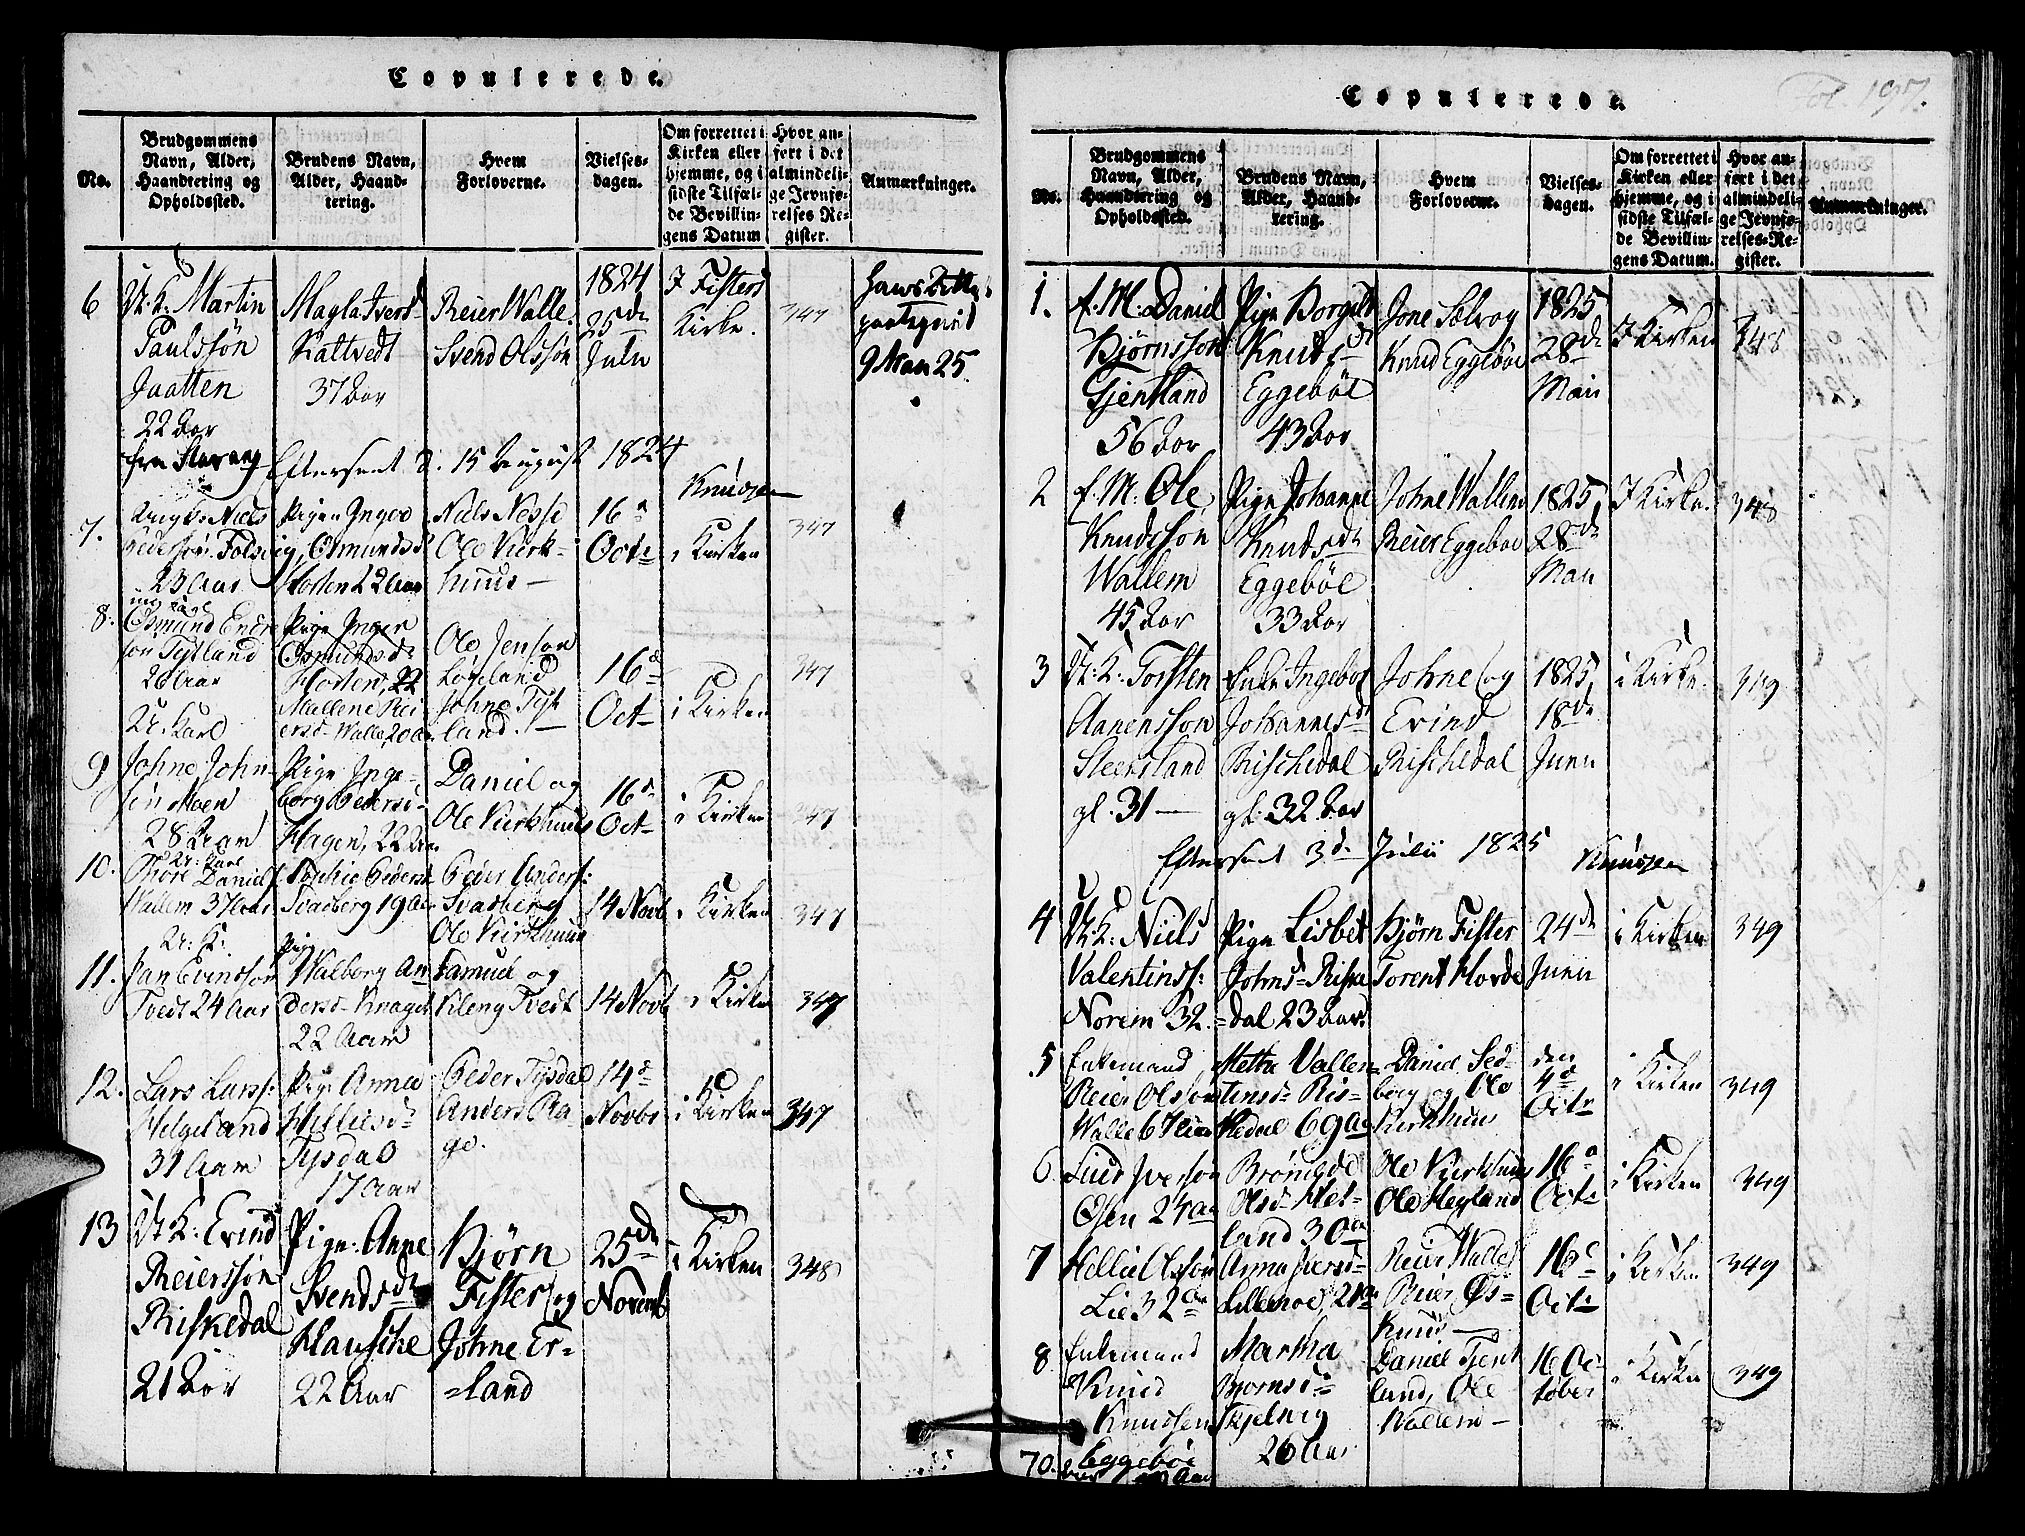 Copulerede.
No.
Brudgommens
Navn, Alder,
Haandtering og
Opholdssted.
Brudens Navn,
Alder, Haand-
tering.
Hvem
Forloverne.
Vielses-
dagen.
Om forrettet i
Kirken eller
hjemme, og i
sidste Tilfæl-
de Bevillin-
gens Datum
Hvor an-
ført i det
almindeli-
ge Jevnfø-
relses Re-
gister.
Anmærkninger.
6
U. K. Martin
Paulssøn
Jaatten
22 Aar
fra Stavang
Magla Iversd
Kaltvedt
37 Aar
Reier Walle
Svend Olssøn
1824
25de
Julii
I Fisters
Kirke.
347
9 Man 25.
Efterseet d. 15 August 1824
Knudzen
7.
Niels
Pedersøn Folsvig
23 Aar
Pigen Inger
Osmundsd
Horten 22 Aar
Niels Nesse
Ole Kirk-
huus
16
Oct
i Kirken
347
8.
Osmund Endre
søn Tytland
26 Aar
Pige Inger
Osmundsd
Horten, 22
Mallene Rei
ersd Walle, 20 Aar
Ole Jenson
Løgeland
Johne Tyt
land.
16
Oct
i Kirken
347
9
U. Karl
Johne John-
søn Moen
28 Aar
Pige Inge-
borg Pedersd
Hagen, 22 Aar
Daniel og
Ole Kirkhuus
16d
Oct
i Kirken
347
10.
U. Karl
Thore Daniels
Wallem 37 Aar
Sophie Pedersd
Svadberg 19 Aar
Peder Anders:
Svadberg
Ole Kirkhuus
14 Novb
i Kirken
347
11.
U. K.
Jan Evindsøn
Tvedt 24 Aar
Pige
Walborg An
dersd Knaget
22 Aar
Samuel og
Kileng Tvedt
14 Novb
i Kirke
347
12.
Lars Larss:
Helgeland
31 Aar
Pige Anna
Williesd
Tysdal
17 Aar
Peder Tysdal
Anders Ra-
ge.
14d
Novbr
i Kirken
347
13
U. K. Evind
Reierssøn
Riskedal
21 Aar
Pige Anne
Svendsdt
Hauske
22 Aar
Bjørn
Fister og
Johne Er-
=land
25de
Novemb
i Kirken
348
Copulerede.
Fol. 197.
No.
Brudgommens
Navn, Alder,
Haandtering og
Opholdssted.
Brudens Navn,
Alder, Haand-
tering.
Hvem
Forloverne.
Vielses-
dagen.
Om forrettet i
Kirken eller
hjemme, og i
sidste Tilfæl-
de Bevillin-
gens Datum.
Hvor an-
ført i det
almindeli-
ge Jevnfø-
relses-Re-
gister.
Anmærkninger.
1.
E. M. Daniel
Bjørnssøn
Gjentland
56 Aar
Pige Borgild
Knudsdt
Eggebøe
43 Aar
Jone Solvog
Knud Eggebøe
1825
28de
Maii
I Kirken
348
2
E. M. Ole
Knudssøn
Wallem
45 Aar
Pige Johanne
Knudsdt
Eggebøe
33 Aar
Johne Wallem
Reier Eggeboe
1825
28de
Maii
I Kirke.
348
3
U. K. Torsten
Aanenssøn
Steensland
gl. 31
Enke Ingebor
Johannesdt
Rischedal
gl. 32 Aar
Johne og
Evind
Rischedal
1825
18de
Junii
i Kirke
349
Efterseet 3de Julii 1825 Knudzen
4
U. K. Niels
Valentinss:
Norem 32.
Pige Lisbet
Johnsd Riske
=dal 23 Aar
Bjørn Fister
Torent Hovde
24de
Junii
i Kirken
349
5
Enkemand
Reier Olsson
Walle 67 Aar
Metha Vallen
tinsd Ris-
kedal 69 Aar
Daniel Sed-
berg og Ole
Kirkhuus
den
4de
Octr
i Kirken
349
6.
Lued Iversøn
Osen 24 Aar
Brønlde
Olsd Høt-
land 30 Aar
Ole Kirkhuus
Ole Høyland
16
Oct
i Kirken
349
7
Hellie Olssøn
Lie 32 Aar
Anna Iversd
Lillemoe, 21 Aar
Reier Walle
Reier Øs-
knud
16d
Oct
i Kirken
349
8
Enkemand
Knud
Knudsen
Eggebøe
Martha
Bjornsd
Skjelvig
26 Aar
Daniel Tjent
land, Ole
Wallem
16 Oc
tober
i Kirke
349
70.